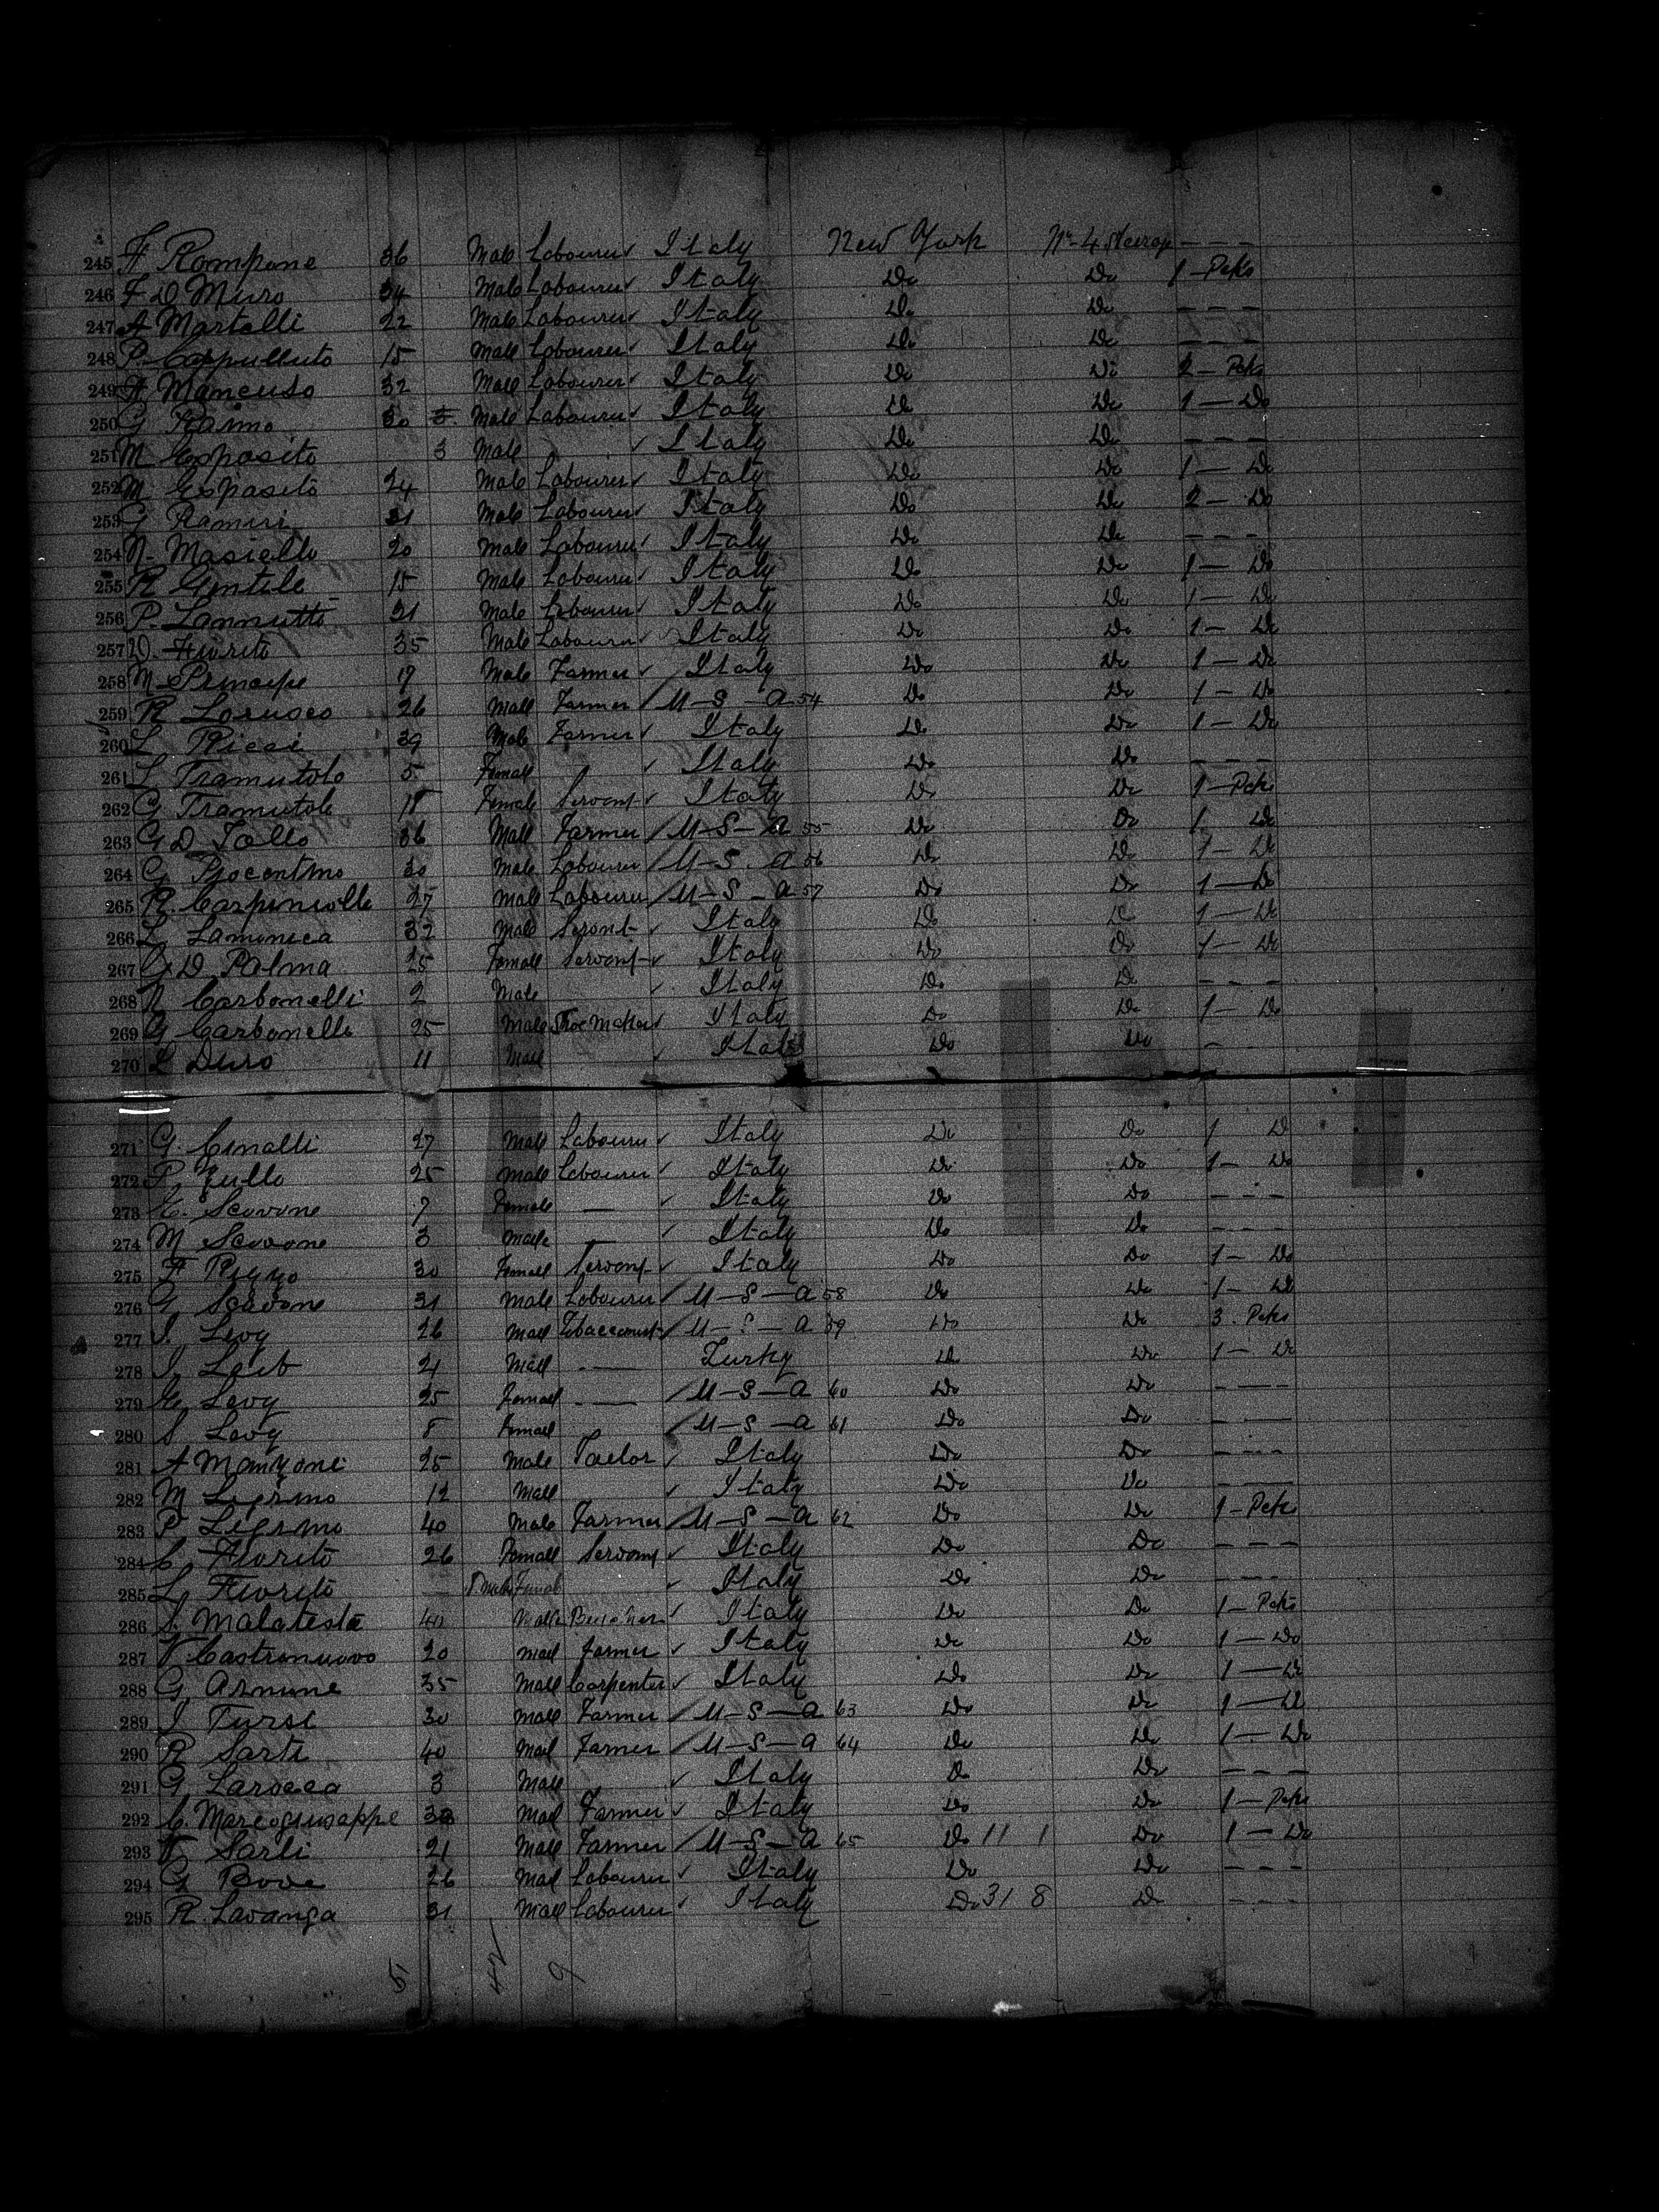 245 F Rompone 36 Male Labourer ✓ Italy New York No-4 Steerage - - -
246 F D Muro 34 Male Labourer ✓ Italy Do Do 1 - Pcks
247 A Martelli 22 Male Labourer ✓ Italy Do Do - - -
248 P 15 Male Labourer ✓ Italy Do Do - - -
249 A Mancuso 32 Male Labourer ✓ Italy Do Do 2 - Pcks
250 G Raimo 30 Male Labourer ✓ Italy Do Do 1 - Do
251 M Esposito 3 Male ✓ Italy Do Do - - -
252 M Esposito 24 Male Labourer ✓ Italy Do Do 1 - Do
253 G Ramiri 31 Male Labourer ✓ Italy Do Do 2 - Do
254 N- Masiello 20 Male Labourer ✓ Italy Do Do - - -
255 R Gentile 15 Male Labourer ✓ Italy Do Do 1 - Do
256 P. Lannutti 21 Male Labourer ✓ Italy Do Do 1 - Do
257 D. Fiorito 35 Male Labourer ✓ Italy Do Do 1 - Do
258 M Principe 19 Male Farmer ✓ Italy Do Do 1 - Do
259 R Lorusco 26 Male Farmer / U-S-A 54 Do Do 1 - Do
260 L Ricci 39 Male Farmer ✓ Italy Do Do 1 - Do
261 L Tramutolo 5 Female ✓ Italy Do Do - - -
262 G Tramutolo 18 Female Servant ✓ Italy Do Do 1 - Pcks
263 G D Tallo 36 Male Farmer / U-S-A 55 Do Do 1 Do
264 G 30 Male Labourer / U-S-A 56 Do Do 1 - Do
265 R. Carpiniello 27 Male Labourer / U-S-A 57 Do Do 1 - Do
266 L Lamonica 32 Male Servnt ✓ Italy Do Do 1 - Do
267 G D Palma 25 Female Servant ✓ Italy Do Do 1 - Do
268 N Carbonelli 2 Male ✓ Italy Do Do - - -
269 G Carbonelli 25 Male Shoe Maker ✓ Italy Do Do 1 - Do
270 L Duro 11 Male ✓ Italy Do Do -
271 G. Cinalli 27 Male Labourer ✓ Italy Do Do 1 Do
272 P Zullo 25 Male Labourer ✓ Italy Do Do 1 - Do
273 C. Scavone 7 Female — ✓ Italy Do Do - - -
274 M Scavone 3 Male — ✓ Italy Do Do - - -
275 F Rizzo 30 Female Servant ✓ Italy Do Do 1 - Do
276 G Scavone 31 Male Labourer / U-S-A 58 Do Do 1 - Do
277 J. Levy 26 Male Tobacconist / U-S-A 59 Do Do 3. Pcks
278 J Leib 21 Male — Turky Do Do 1 - Do
279 E Levy 25 Female — / U-S-A 60 Do Do - —
280 S Levy 8 Female / U-S-A 61 Do Do - —
281 A Manzoni 25 Male Taelor ✓ Italy Do Do - - -
282 M Legrino 12 Male ✓ Italy Do Do - —
283 P Legrino 40 Male Farmer / U-S-A 62 Do Do 1 - Pcks
284 C Fiorito 26 Female Servant ✓ Italy Do Do - - -
285 L Fiorito — Female ✓ Italy Do Do - - -
286 S. Malatesta 40 Male Butcher ✓ Italy Do Do 1 - Pcks
287 V Castronuovo 20 Male Farmer ✓ Italy Do Do 1 - Do
288 G Armine 35 Male Carpenter ✓ Italy Do Do 1 - Do
289 J Tursi 30 Male Farmer / U-S-A 63 Do Do 1 - Do
290 R Sarti 40 Male Farmer / U-S-A 64 Do Do 1 - Do
291 G Larocca 3 Male ✓ Italy Do Do - - -
292 C. Marcogiuseppe Male Farmer ✓ Italy Do Do 1 - Pcks
293 V Sarli 21 Male Farmer / U-S-A 65 Do 11 1 Do 1 - Do
294 G Bove 26 Male Labourer ✓ Italy Do Do - - -
295 R. Lavanga 31 Male Labourer ✓ Italy Do 31 8 Do - - -
5 42 9